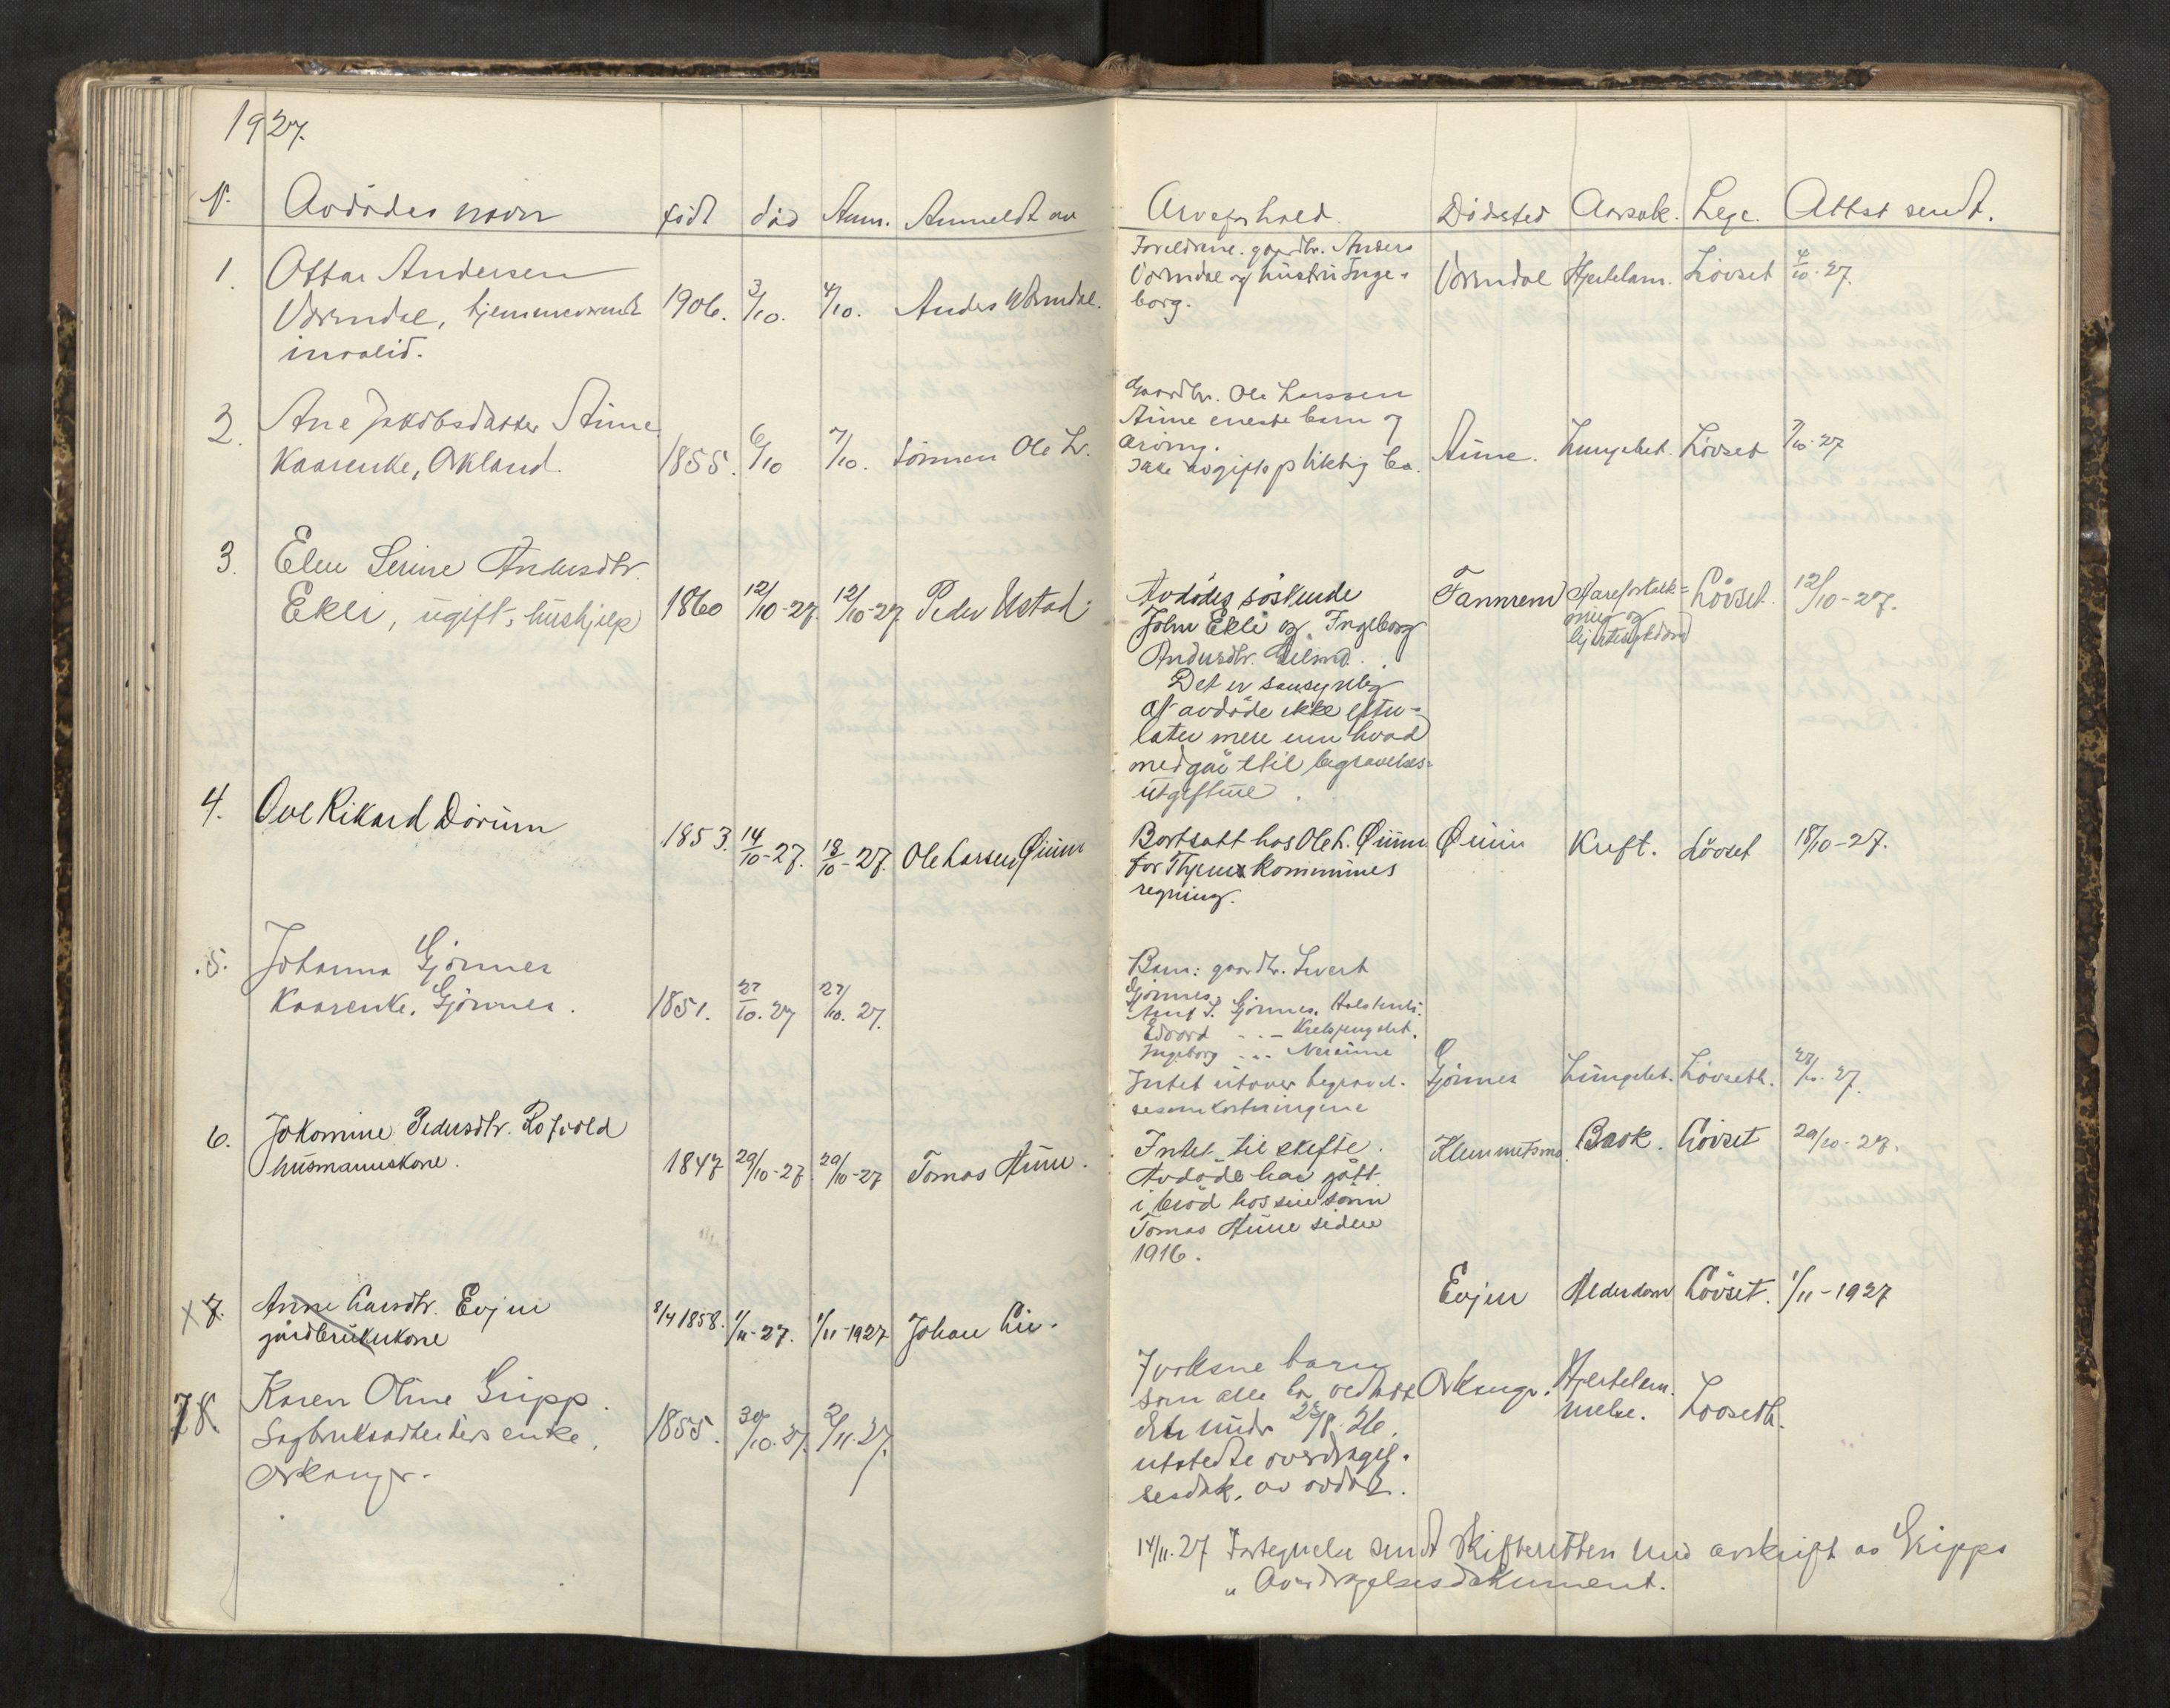 1927.
N. Avdödes navn födt död Anm. Anmeldt av Arveforhold. Dödssted Aarsak. Lege. Attest sendt.
1. Ottar Andersen
Vormdal, hjemmeværende
invalid.
1906. 3/10. 4/10. Anders Vormdal.
Foreldrene. gaardbr. Anders
Vormdal og hustru Inge-
borg.
Vormdal Hjertelam. Lövset 4/10-27.
2. Ane Jakobsdatter Aune
Kaarenke, Orkland.
1855. 6/10 7/10. Sönnen Ole L.
Gaardbr. Ole Larssen
Aune eneste barn og
arving.
Ikke avgiftspliktig bo.
Aune. Lungebet. Lövset 7/10-27
3. Elen Serine Andersdtr.
Ekli, ugift, hushjelp
1860 12/10-27. 12/10-27 Peder Ustad.
Avdödes söskende
John Ekli og Ingeborg
Andersdtr.
Det er sansynlig
at avdöde ikke efter-
later mere enn hvad
medgår til begravelses-
utgiftene.
Fannrem Aareforkalk-
ning og
hjertesykdom
Lövset. 12/10-27.
4. Ove Rikard Dörum
1853. 14/10-27. 18/10-27. Ole Larsen Øium
Bortsatt hos Ole L. Øium
for kommunes
regning.
Øium Kreft. Lövset 18/10-27.
5. Johanna Gjönnes
Kaarenke, Gjönnes.
1851. 27/10. 27 27/10. 27.
Barn: gaardbr. Sivert
Gjönnes,
Arnt S. Gjönnes,
Edvard -"-
Ingeborg -"-
Intet utover begravel-
sesomkostningene
Gjönnes Lungebet. Lövseth. 27/10. 27.
6. Jokomine Pedersdtr. Rofvold
husmannskone.
1847 29/10-27. 29/10-27 Tomas Aune.
Intet til skifte.
Avdöde har gått
i bröd hos sin sönn
Tomas Aune siden
1916.
Klemmetsmo. Brok. Lövset 29/10-27.
x 7. Anne Larsdtr. Evjen
gårdbrukerkone
8/4 1858. 1/11-27. 1/11-1927 Johan
Evjen Alderdom Lövset. 1/11-1927
7 8. Karen Oline Gripp.
Sagbruksarbeiders enke,
Orkanger.
1855. 30/10.27. 2/11.27.
7 voksne barn
som alle har vedtatt
det under 28/8.26.
utstedte overdragel-
sesdok. av avdöde.
Orkanger. Hjertelam-
melse. Lövseth.
14/11.27 Fortegnelse sendt Skifteretten med avskrift av Gripps
" Overdragelsesdokument.